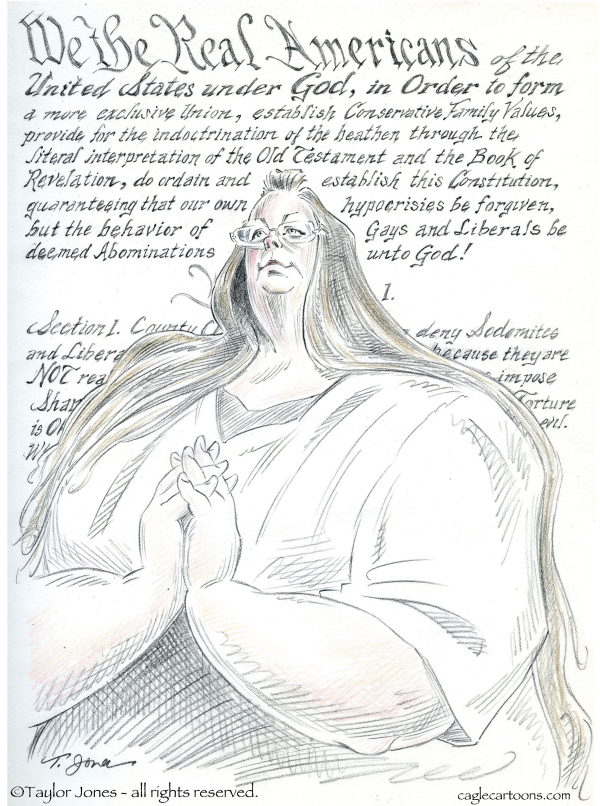 We the Real Americans of the
United States under God, in Order to form
a more exclusive Union, establish Conservative Family Values,
provide for the indoctrination of the heathen through the
literal interpretation of the Old Testament and the Book of
Revelation, do ordain and establish this Constitution,
guaranteeing that our own hypocrisies be forgiven,
but the behavior of Gays and Liberals be
deemed Abominations unto God!
1.
Section 1. County deny Sodomites
and Libera because they are
NOT rea impose
Shar Torture
is evil.
T. Jones
©Taylor Jones - all rights reserved.
caglecartoons.com